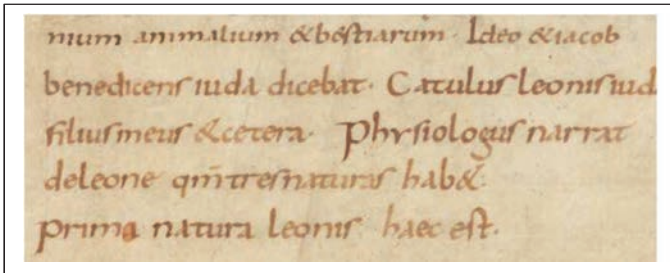 nium animalium &bestiarum. Ideo &iacob
benedicens iuda dicebat. Catulus leonis iud
filius meus &cetera. Phisiologus narrat
deleone qm̅ tres naturas hab&.
prima natura leonis haec est.